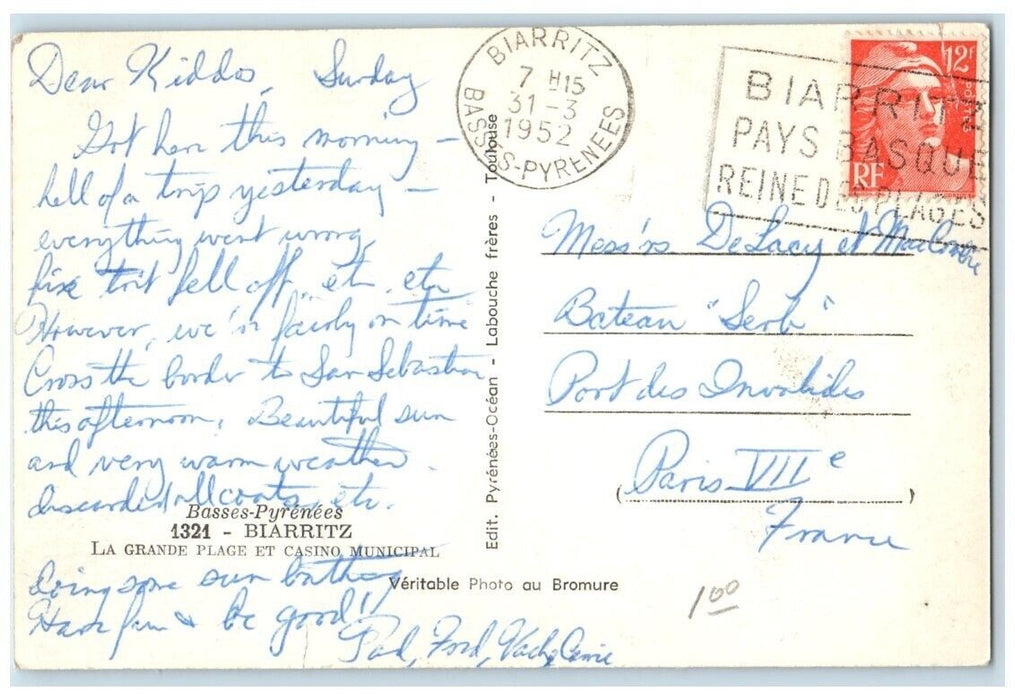 Dear Kiddos, Sunday
Got here this morning –
hell of a trip yesterday –
everything went wrong,
fell off, etc. etc.
However, we're fairly on time
Cross the border to San Sebastian
this afternoon. Beautiful sun
and very warm weather.
discarded all coats, etc.
Basses-Pyrénées
1321 - BIARRITZ
LA GRANDE PLAGE ET CASINO MUNICIPAL
doing some sun bathing
Have fun & be good!!
Pad, Ford,
Véritable Photo au Bromure
Edit. Pyrénées-Océan - Labouche frères - Toulouse
BIARRITZ
7 H15
31 - 3
1952
BASSES-PYRENEES
BIARRITZ
PAYS BASQUE
REINE DES PLAGES
12F
RF
Mess'rs De Lacy et
Bateau "Serb"
Port des Invalides
(Paris VIIe)
France
1 00